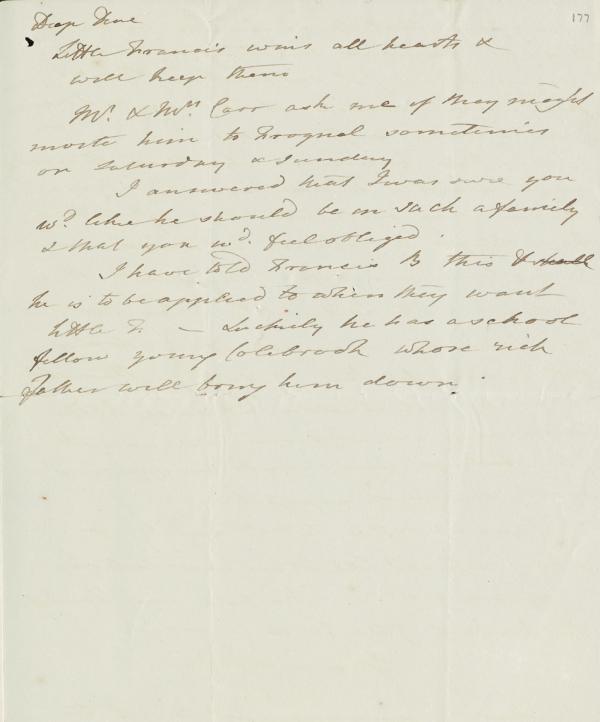 177
Little Francis wins all hearts &
will keep them
Mr. & Mrs. Carr ask me if they might
invite him to Frognel sometimes
on Saturday & Sunday
I answered that I was sure you
wd. like he should be in such a family
& that you wd. feel obliged.
I have told Francis B this &
he is to be applied to when they want
little F — Luckily he has a school
fellow young Colebrook whose rich
father will bring him down.